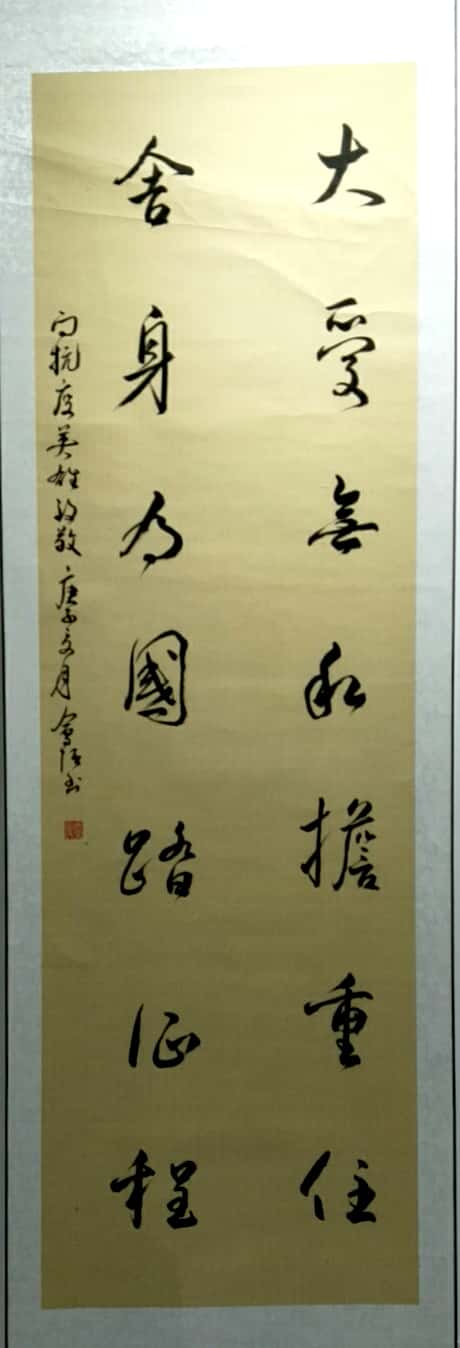 大愛無私擔重任
舍身为國踏征程
向抗疫英雄致敬 庚子 月 书